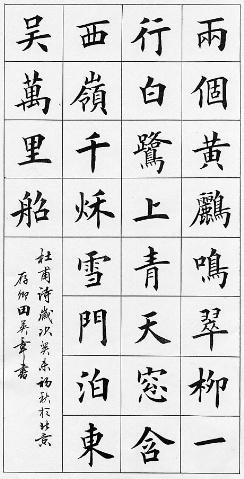 兩個黃鸝鳴翠柳一
行白鷺上青天窓含
西嶺千秌雪門泊東
吴萬里船
杜甫詩歲次癸未初秋於北京
存仰田英章書